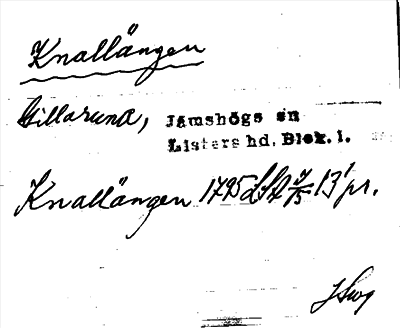 Knallängen
Gillaruna, Jämshögs sn
Listers hd. Blek. l.
Knallängen 1795 13 pr.